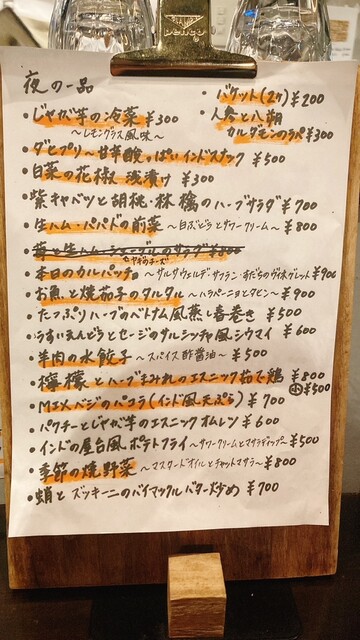 夜の一品
・じゃが芋の冷菜 ¥300
〜レモングラス風味〜
・バケット(2ケ) ¥200
・人参と八朔
カルダモンのラペ ¥300
・ダヒプリ〜甘辛酸っぱいインドスナック ¥500
・白菜の花椒浅漬け ¥300
・紫キャベツと胡桃・林檎のハーブサラダ ¥700
・生ハム・パパドの前菜 〜白ぶどうとサワークリーム〜 ¥800
・本日のカルパッチョ 〜ザルサウェルデ サフラン・すだちのヴィネグレット ¥900
・お魚と焼茄子のタルタル 〜ハラペーニョとタヒン〜 ¥900
・たっぷりハーブのベトナム風蒸し春巻き ¥500
・うすいえんどうとセージのサルシッチャ風シウマイ ¥600
・羊肉の水餃子 〜スパイス酢醤油〜 ¥500
・檸檬とハーブまみれのエスニック茹で鶏 ¥800
小¥500
・MIXベジのパコラ(インド風天ぷら) ¥700
・パクチーとじゃが芋のエスニックオムレツ ¥600
・インドの屋台風ポテトフライ 〜サワークリームとマサラディップ〜 ¥500
・季節の焼野菜 〜マスタードオイルとチャットマサラ〜 ¥800
・蛸とズッキーニのバイマックルバター炒め ¥700